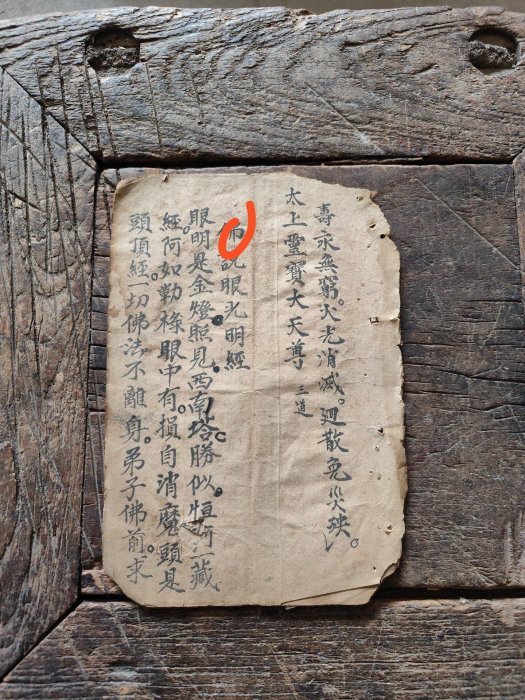 壽永無窮。火光消滅。迴散免災殃。
太上靈寶大天尊 三道
佛說眼光明經
眼明是金燈照見西南塔。勝似恒河一藏
經。阿如勒㯟眼中有。損自消魔頭是
頭頂經一切佛法不離身。弟子佛前求